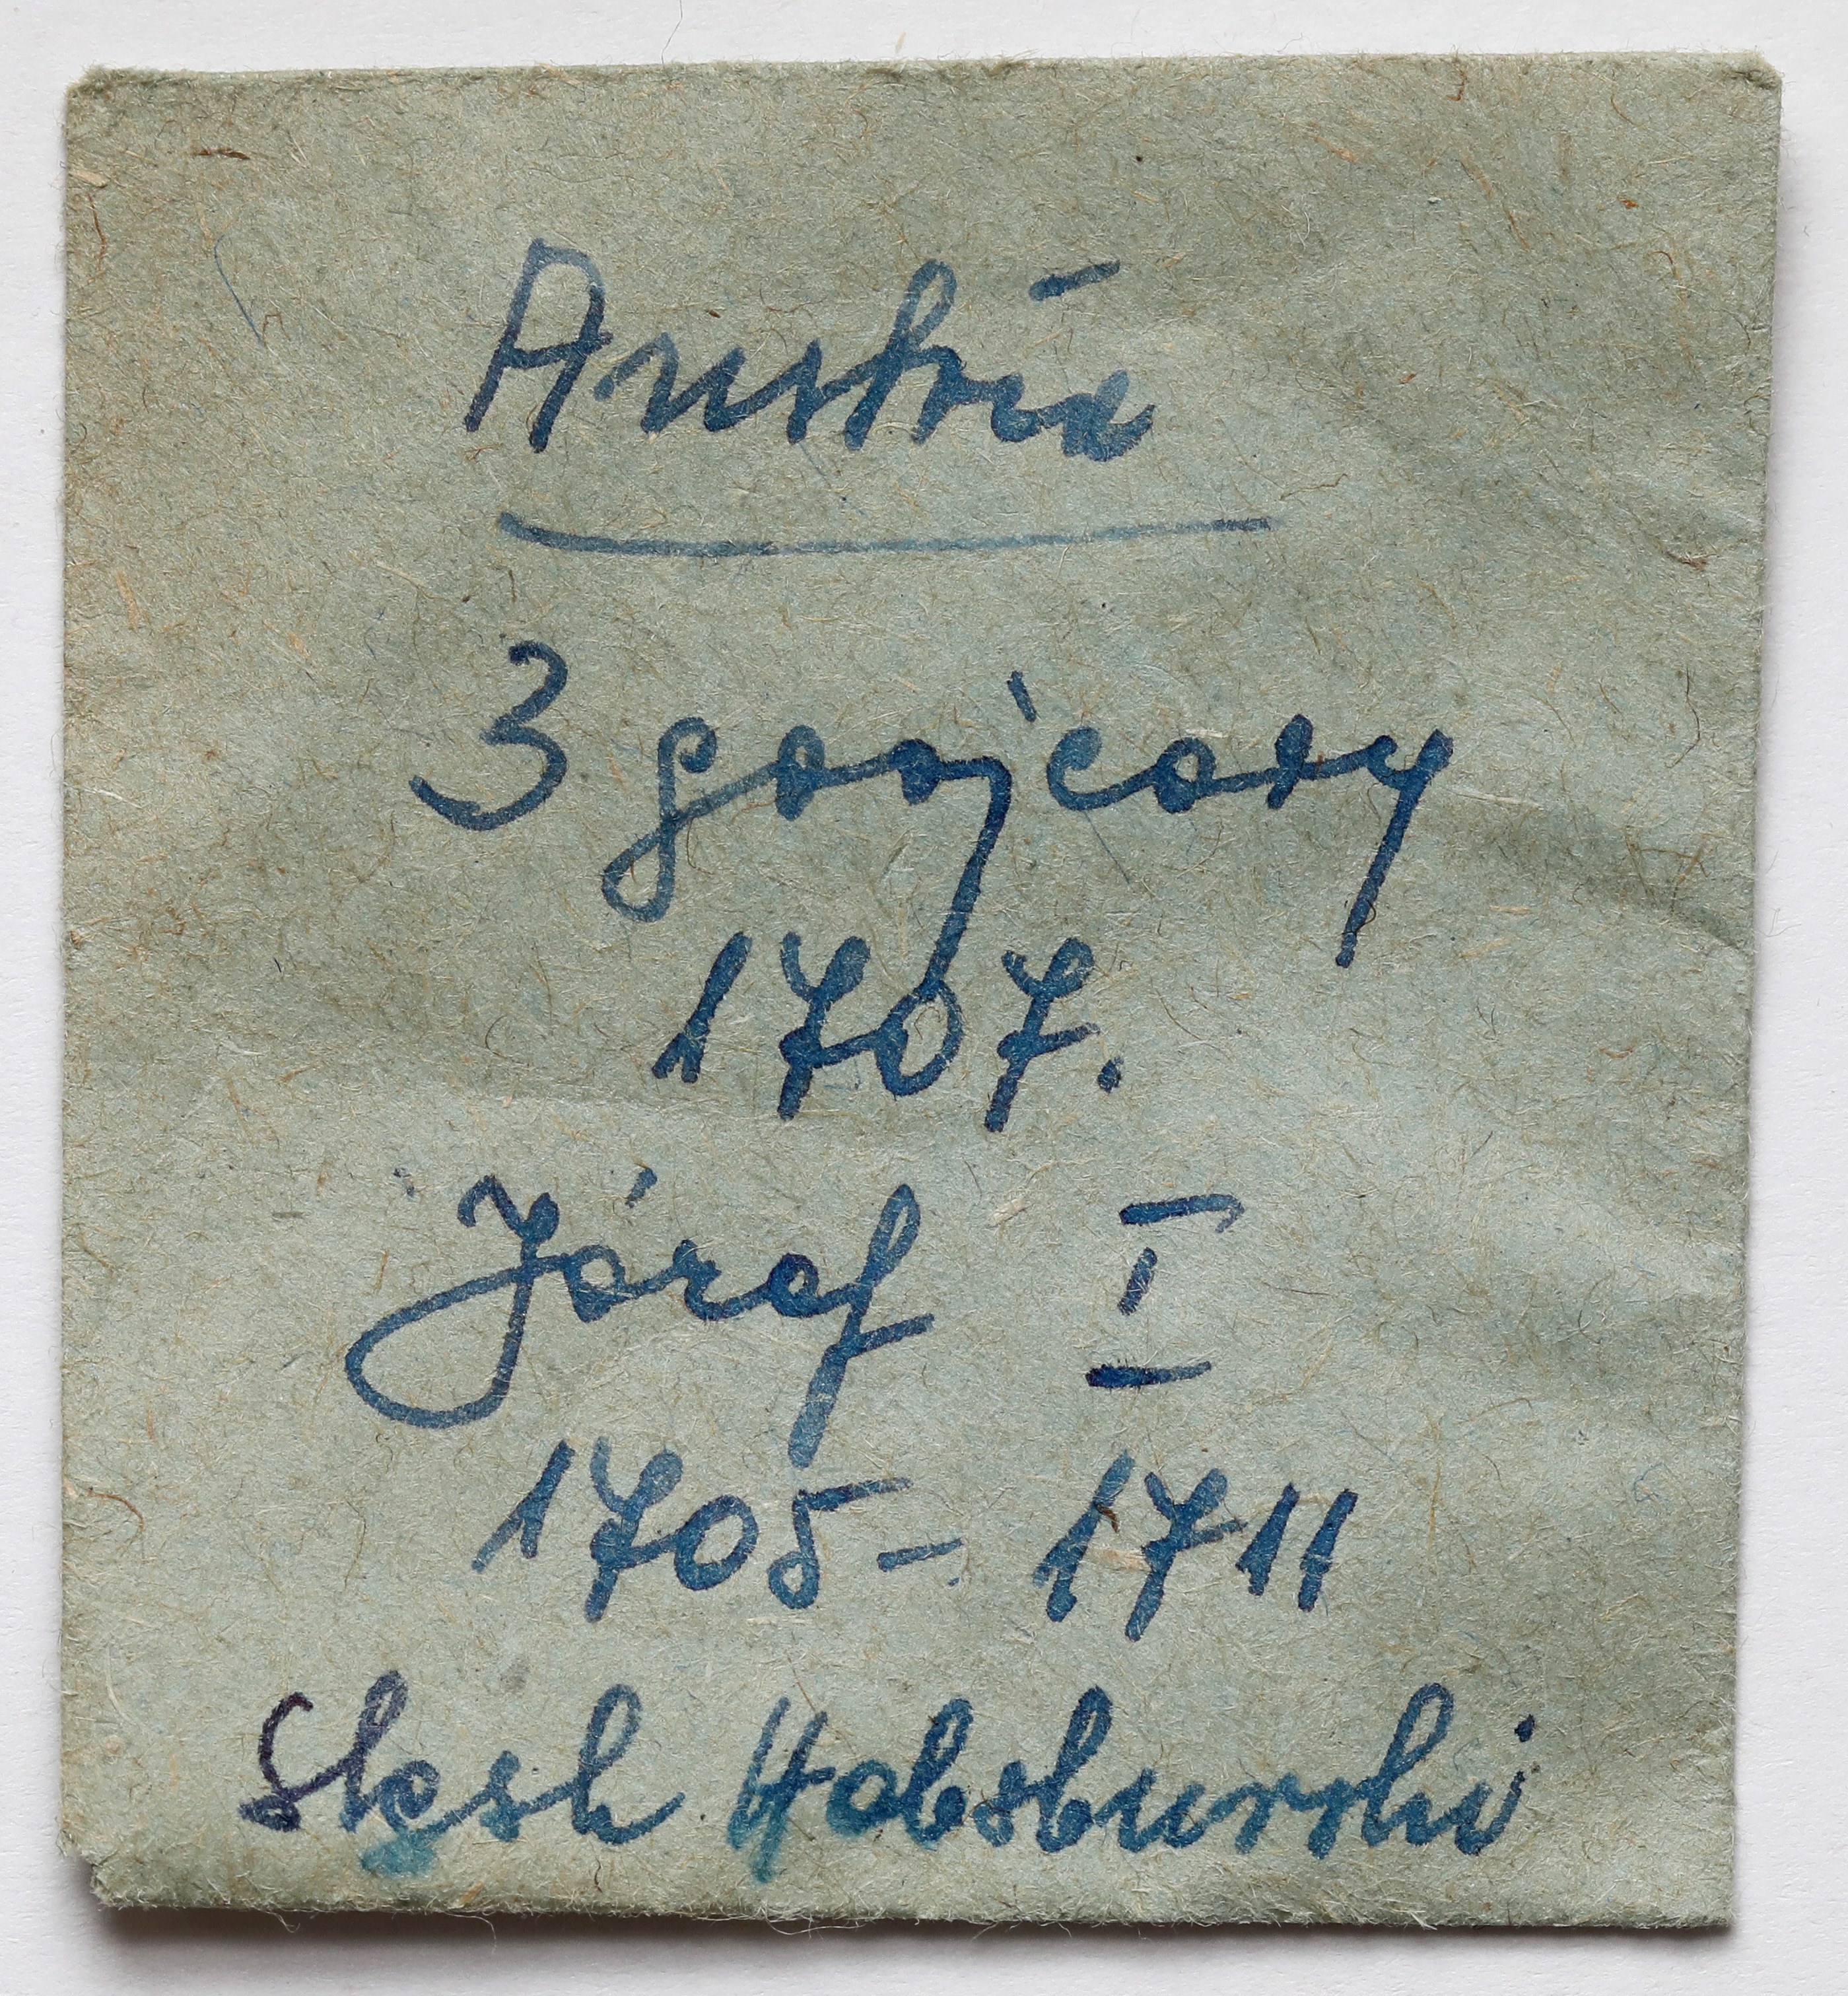 Austria
3 grajcary
1707.
Józef I
1705 - 1711
Śląsk Habsburski